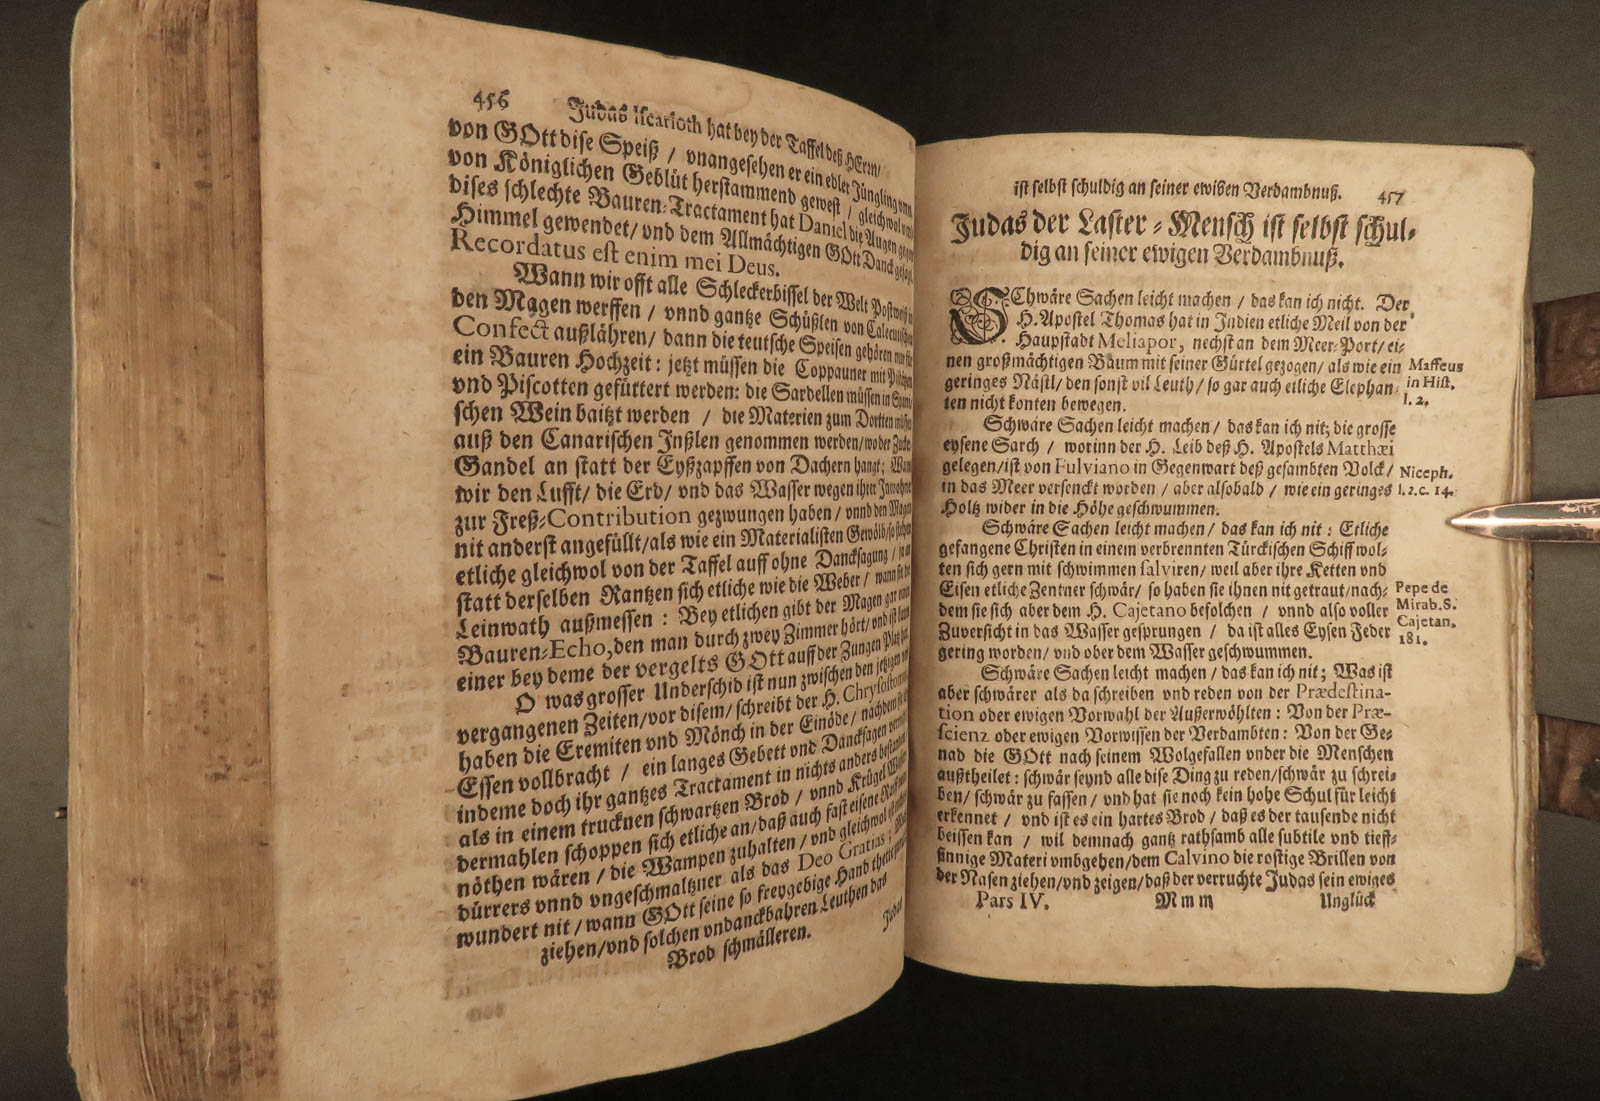 456 Judas Iscarioth hat bey der Taffel deß HErrn/
von GOtt dise Speiß / vnangesehen er ein edler Jüngling vnnd
von Königlichen Geblüt herstammend gewest / gleichwol umb
dises schlechte Bauren-Tractament hat Daniel die Augen gegen
Himmel gewendet/ vnd dem Allmächtigen GOtt Danck gesagt.
Recordatus est enim mei Deus.
Wann wir offt alle Schleckerbissel der Welt Postweiß in
den Magen werffen / vnnd gantze Schüßlen von Calecutischen
Confect außlähren/ dann die teutsche Speisen gehören nur für
ein Bauren Hochzeit: jetzt müssen die Coppauner mit
vnd Piscotten gefüttert werden: die Sardellen müssen in Spani-
schen Wein baitzt werden / die Materien zum Dortten müssen
auß den Canarischen Inßlen genommen werden/ wo der Zucker-
Candel an statt der Eyßzapffen von Dachern hangt; Wann
wir den Lufft/ die Erd/ vnd das Wasser wegen ihrer Inwohner
zur Freß-Contribution gezwungen haben / vnnd den Magen
nit anderst angefüllt/ als wie ein Materialisten Gewölb/ so stehen
etliche gleichwol von der Taffel auff ohne Dancksagung / ja an
statt derselben Rantzen sich etliche wie die Weber / wann sie die
Leinwath außmessen: Bey etlichen gibt der Magen gar einen
Bauren-Echo, den man durch zwey Zimmer hört/ vnd ist kaum
einer bey deme der vergelts GOtt auff der Zungen Platz hat.
O was grosser Underschid ist nun zwischen den jetzigen vnd
vergangenen Zeiten/ vor disem/ schreibt der H. Chrysostomus
haben die Eremiten vnd Mönch in der Einöde / nachdem sie das
Essen vollbracht / ein langes Gebett vnd Dancksagen verricht
indeme doch ihr gantzes Tractament in nichts anders bestanden
als in einem trucknen schwartzen Brod / vnnd Krügel Wasser
dermahlen schoppen sich etliche an/ daß auch fast eisene Raiff
nöthen wären / die Wampen zuhalten / vnd gleichwol ist nichts
dürrers vnnd vngeschmaltzner als das Deo Gratias;
wundert nit / wann GOtt seine so freygebige Hand thette
ziehen/ vnd solchen vndanckbahren Leuthen das
Brod schmälleren.
Judas
ist selbst schuldig an seiner ewigen Verdambnuß. 457
Judas der Laster-Mensch ist selbst schul-
dig an seiner ewigen Verdambnuß.
SChwäre Sachen leicht machen / das kan ich nicht. Der
H. Apostel Thomas hat in Indien etliche Meil von der
Haupstadt Meliapor, nechst an dem Meer-Port/ ei-
nen großmächtigen Baum mit seiner Gürtel gezogen/ als wie ein
geringes Nästl/ den sonst vil Leuth/ so gar auch etliche Elephan-
ten nicht konten bewegen.
Maffeus
in Hist.
l. 2.
Schwäre Sachen leicht machen / das kan ich nit; die grosse
eysene Sarch / worinn der H. Leib deß H. Apostels Matthæi
gelegen/ ist von Fulviano in Gegenwart deß gesambten Volck/
in das Meer versenckt worden / aber alsobald / wie ein geringes
Holtz wider in die Höhe geschwummen.
Niceph.
l. 2. c. 14.
Schwäre Sachen leicht machen / das kan ich nit: Etliche
gefangene Christen in einem verbrennten Türckischen Schiff wol-
ten sich gern mit schwimmen salviren/ weil aber ihre Ketten vnd
Eisen etliche Zentner schwär/ so haben sie ihnen nit getraut/ nach-
dem sie sich aber dem H. Cajetano befolchen / vnnd also voller
Zuversicht in das Wasser gesprungen / da ist alles Eysen Feder
gering worden/ vnd ober dem Wasser geschwummen.
Pepe de
Mirab. S.
Cajetan.
181.
Schwäre Sachen leicht machen / das kan ich nit; Was ist
aber schwärer als da schreiben vnd reden von der Prædestina-
tion oder ewigen Vorwahl der Außerwöhlten: Von der Præ-
scienz oder ewigen Vorwissen der Verdambten: Von der Ge-
nad die GOtt nach seinem Wolgefallen vnder die Menschen
außtheilet: schwär seynd alle dise Ding zu reden/ schwär zu schrei-
ben/ schwär zu fassen / vnd hat sie noch kein hohe Schul für leicht
erkennet / vnd ist es ein hartes Brod / daß es der tausende nicht
beissen kan / wil demnach gantz rathsamb alle subtile vnd tieff-
sinnige Materi vmbgehen/ dem Calvino die rostige Brillen von
der Nasen ziehen/ vnd zeigen/ daß der verruchte Judas sein ewiges
Pars IV. Mmm Unglück